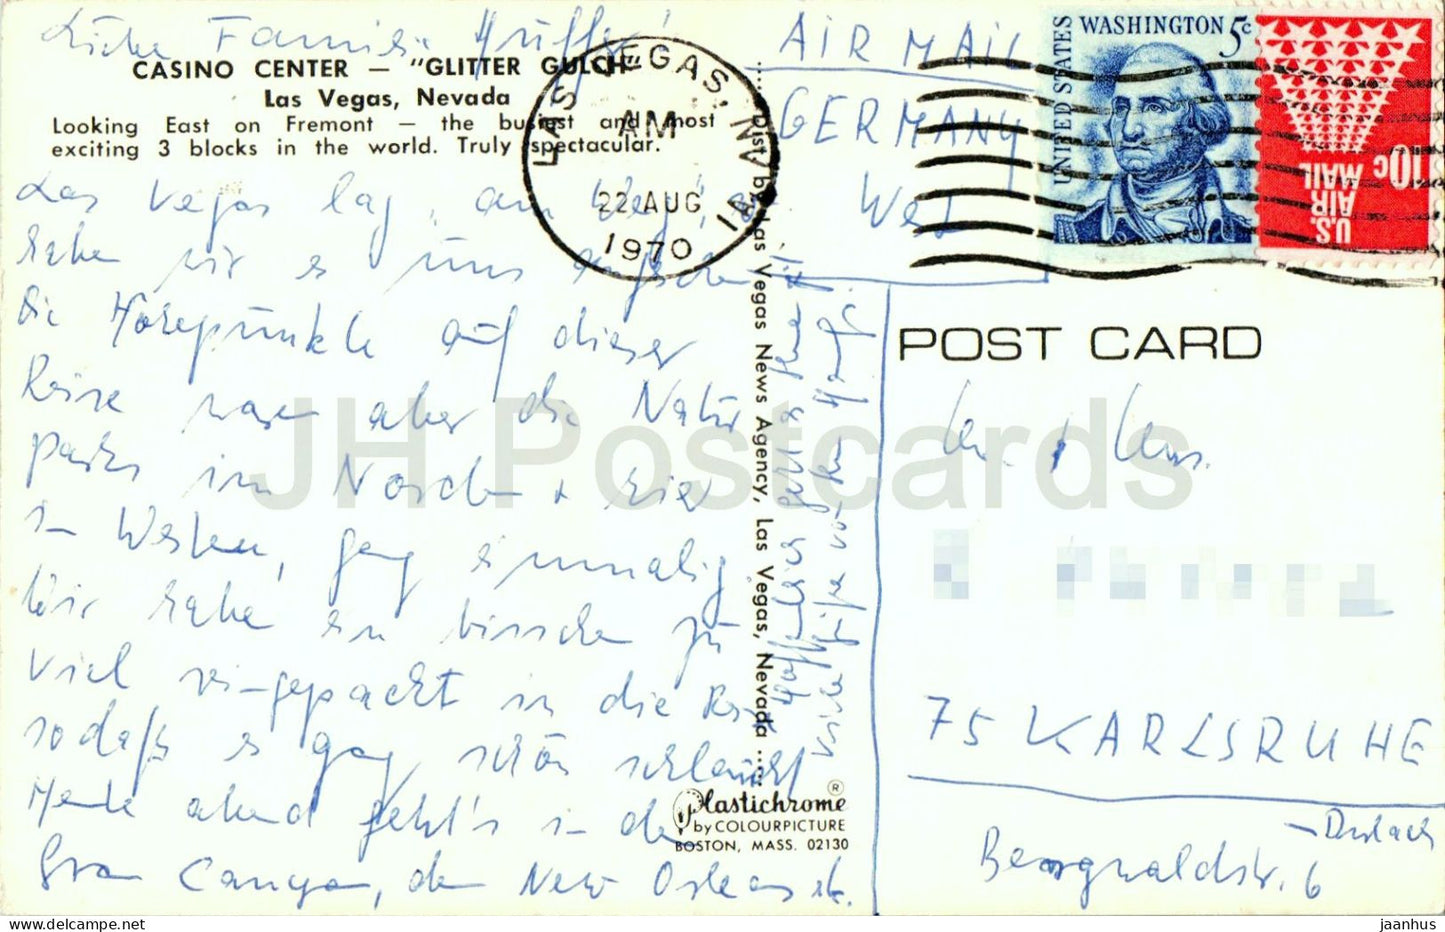 Liebe Familie
CASINO CENTER — "GLITTER GULCH"
Las Vegas, Nevada
Looking East on Fremont — the busiest and most
exciting 3 blocks in the world. Truly spectacular.
Las Vegas lag "am Weg", da
haben wir es uns angesehen
die Höhepunkte auf dieser
Reise waren aber die Natur
parks im Norden + hier
im Westen, ganz einmalig
Wir haben ein bisschen zu
viel eingepackt in die Reise
sodaß es ganz schön schlaucht
Heute abend geht's in den
Gran Canyon, dann New Orleans etc.
Dist. by Las Vegas News Agency, Las Vegas, Nevada
Plastichrome ®
by COLOURPICTURE
BOSTON, MASS. 02130
LAS VEGAS, NV
AM
22 AUG
1970
AIR MAIL
GERMANY
West
UNITED STATES
WASHINGTON 5c
10c
U.S.
AIR
MAIL
POST CARD
75 KARLSRUHE
- Durlach
Bergwaldstr. 6
JH Postcards
jaanhus